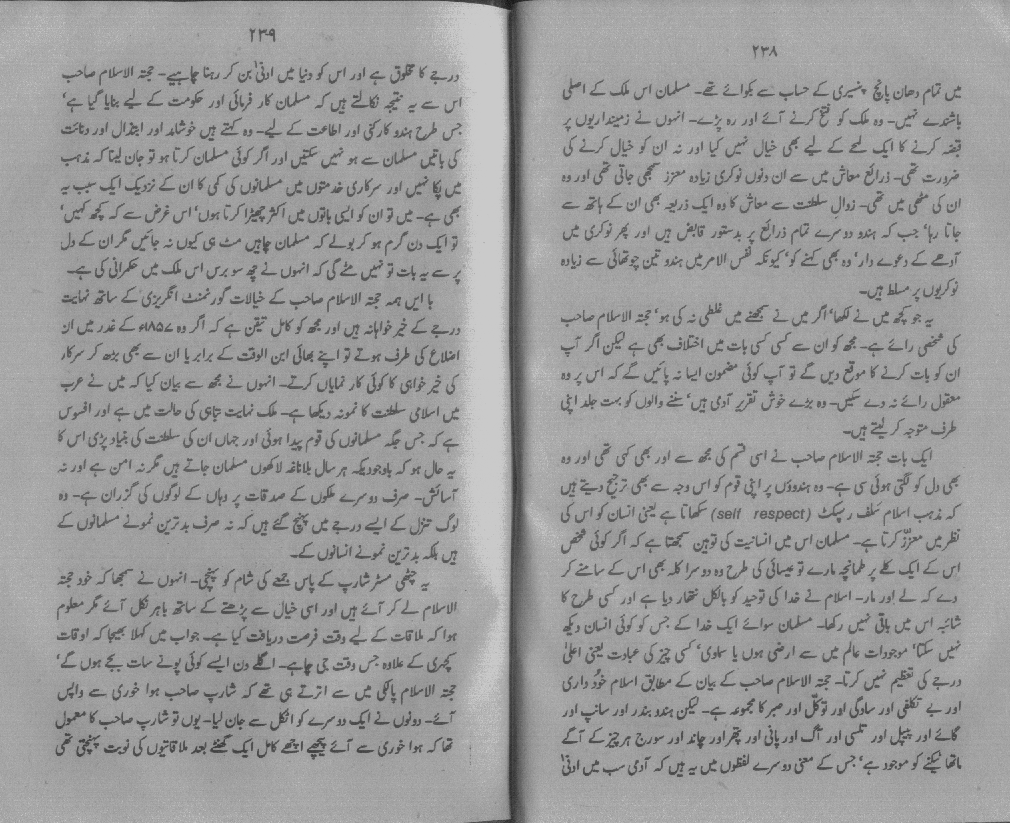 ۲۳۸
میں تمام دھان پانچ پنسیری کے حساب سے بکوائے تھے۔ مسلمان اس ملک کے اصلی
باشندے نہیں۔ وہ ملک کو فتح کرنے آئے اور رہ پڑے۔ انہوں نے زمینداریوں پر
قبضہ کرنے کا ایک لمحے کے لیے بھی خیال نہیں کیا اور نہ ان کو خیال کرنے کی
ضرورت تھی۔ ذرائع معاش میں سے ان دنوں نوکری زیادہ معزز سمجھی جاتی تھی اور وہ
ان کی مٹھی میں تھی۔ زوال سلطنت سے معاش کا وہ ایک ذریعہ بھی ان کے ہاتھ سے
جاتا رہا' جب کہ ہندو دوسرے تمام ذرائع پر بدستور قابض ہیں اور پھر نوکری میں
آدھے کے دعوے دار' وہ بھی کہنے کو' کیونکہ نفس الامر میں ہندو تین چوتھائی سے زیادہ
نوکریوں پر مسلط ہیں۔
یہ جو کچھ میں نے لکھا' اگر میں نے سمجھنے میں غلطی نہ کی ہو' حجتہ الاسلام صاحب
کی شخصی رائے ہے۔ مجھ کو ان سے کسی کسی بات میں اختلاف بھی ہے لیکن اگر آپ
ان کو بات کرنے کا موقع دیں گے تو آپ کوئی مضمون ایسا نہ پائیں گے کہ اس پر وہ
معقول رائے نہ دے سکیں۔ وہ بڑے خوش تقریر آدمی ہیں' سننے والوں کو بہت جلد اپنی
طرف متوجہ کر لیتے ہیں۔
ایک بات حجتہ الاسلام صاحب نے اسی قسم کی مجھ سے اور بھی کہی تھی اور وہ
بھی دل کو لگتی ہوئی سی ہے۔ وہ ہندوؤں پر اپنی قوم کو اس وجہ سے بھی ترجیح دیتے ہیں
کہ مذہب اسلام سلف رسپکٹ (self respect) سکھاتا ہے یعنی انسان کو اس کی
نظر میں معزّز کرتا ہے۔ مسلمان اس میں انسانیت کی توہین سمجھتا ہے کہ اگر کوئی شخص
اس کے ایک کلے پر طمانچہ مارے تو عیسائی کی طرح وہ دوسرا کلہ بھی اس کے سامنے کر
دے کہ لے اور مار۔ اسلام نے خدا کی توحید کو بالکل نتھار دیا ہے اور کسی طرح کا
شائبہ اس میں باقی نہیں رکھا۔ مسلمان سوائے ایک خدا کے جس کو کوئی انسان دیکھ
نہیں سکتا' موجودات عالم میں سے ارضی ہوں یا سماوی' کسی چیز کی عبادت یعنی اعلیٰ
درجے کی تعظیم نہیں کرتا۔ حجتہ الاسلام صاحب کے بیان کے مطابق اسلام خوٗد داری
اور بے تکلفی اور سادگی اور توکّل اور صبر کا مجموعہ ہے۔ لیکن ہندو بندر اور سانپ اور
گائے اور پیپل اور تلسی اور آگ اور پانی اور پتھر اور چاند اور سورج ہر چیز کے آگے
ماتھا ٹیکنے کو موجود ہے' جس کے معنی دوسرے لفظوں میں یہ ہیں کہ آدمی سب میں ادنیٰ
۲۳۹
درجے کا مخلوق ہے اور اس کو دنیا میں ادنیٰ بن کر رہنا چاہیے۔ حجتہ الاسلام صاحب
اس سے یہ نتیجہ نکالتے ہیں کہ مسلمان کار فرمائی اور حکومت کے لیے بنایا گیا ہے'
جس طرح ہندو کارکنی اور اطاعت کے لیے۔ وہ کہتے ہیں خوشامد اور ابتذال اور دنائت
کی باتیں مسلمان سے ہو نہیں سکتیں اور اگر کوئی مسلمان کرتا ہو تو جان لینا کہ مذہب
میں پکا نہیں اور سرکاری خدمتوں میں مسلمانوں کی کمی کا ان کے نزدیک ایک سبب یہ
بھی ہے۔ میں تو ان کو ایسی باتوں میں اکثر چھیڑا کرتا ہوں' اس غرض سے کہ کچھ کہیں'
تو ایک دن گرم ہو کر بولے کہ مسلمان چاہیں مٹ ہی کیوں نہ جائیں مگر ان کے دل
پر سے یہ بات تو نہیں مٹے گی کہ انہوں نے چھ سو برس اس ملک میں حکمرانی کی ہے۔
با ایں ہمہ حجتہ الاسلام صاحب کے خیالات گورنمنٹ انگریزی کے ساتھ نہایت
درجے کے خیر خواہانہ ہیں اور مجھ کو کامل تیقن ہے کہ اگر وہ ۱۸۵۷ء کے غدر میں ان
اضلاع کی طرف ہوتے تو اپنے بھائی ابن الوقت کے برابر یا ان سے بھی بڑھ کر سرکار
کی خیر خواہی کا کوئی کار نمایاں کرتے۔ انہوں نے مجھ سے بیان کیا کہ میں نے عرب
میں اسلامی سلطنت کا نمونہ دیکھا ہے۔ ملک نہایت تباہی کی حالت میں ہے اور افسوس
ہے کہ جس جگہ مسلمانوں کی قوم پیدا ہوئی اور جہاں ان کی سلطنت کی بنیاد پڑی اس کا
یہ حال ہو کہ باوجودیکہ ہر سال بلاناغہ لاکھوں مسلمان جاتے ہیں مگر نہ امن ہے اور نہ
آسائش۔ صرف دوسرے ملکوں کے صدقات پر وہاں کے لوگوں کی گزران ہے۔ وہ
لوگ تنزل کے ایسے درجے میں پہنچ گئے ہیں کہ نہ صرف بدترین نمونے مسلمانوں کے
ہیں بلکہ بدترین نمونے انسانوں کے۔
یہ چٹھی مسٹر شارپ کے پاس جمعے کی شام کو پہنچی۔ انہوں نے سمجھا کہ خود حجتہ
الاسلام لے کر آئے ہیں اور اسی خیال سے پڑھتے کے ساتھ باہر نکل آئے مگر معلوم
ہوا کہ ملاقات کے لیے وقت فرصت دریافت کیا ہے۔ جواب میں کہلا بھیجا کہ اوقات
کچہری کے علاوہ جس وقت جی چاہے۔ اگلے دن ایسے کوئی پونے سات بجے ہوں گے'
حجتہ الاسلام پالکی میں سے اترتے ہی تھے کہ شارپ صاحب ہوا خوری سے واپس
آئے۔ دونوں نے ایک دوسرے کو اٹکل سے جان لیا۔ یوں تو شارپ صاحب کا معمول
تھا کہ ہوا خوری سے آئے پیچھے اچھے کامل ایک گھنٹے بعد ملاقاتیوں کی نوبت پہنچتی تھی